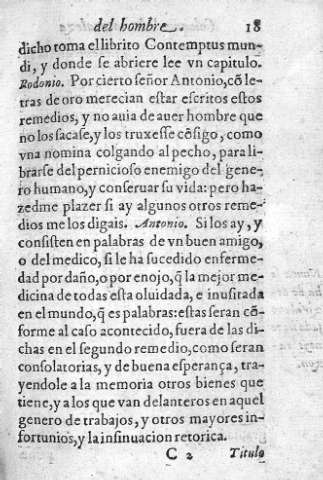 del hombre. 18
dicho toma el librito Contemptus mun-
di, y donde se abriere lee vn capitulo.
Rodonio. Por cierto señor Antonio, cõ le-
tras de oro merecian estar escritos estos
remedios, y no auia de auer hombre que
no los sacase, y los truxesse cõsigo, como
vna nomina colgando al pecho, para li-
brarse del pernicioso enemigo del gene-
ro humano, y conseruar su vida: pero ha-
zedme plazer si ay algunos otros reme-
dios me los digais. Antonio. Si los ay, y
consisten en palabras de vn buen amigo,
o del medico, si le ha sucedido enferme-
dad por daño, o por enojo, q̃ la mejor me-
dicina de todas esta oluidada, e inusitada
en el mundo, q̃ es palabras: estas seran cõ-
forme al caso acontecido, fuera de las di-
chas en el segundo remedio, como seran
consolatorias, y de buena esperança, tra-
yendole a la memoria otros bienes que
tiene, y a los que van delanteros en aquel
genero de trabajos, y otros mayores in-
fortunios, y la insinuacion retorica.
C 2 Titulo